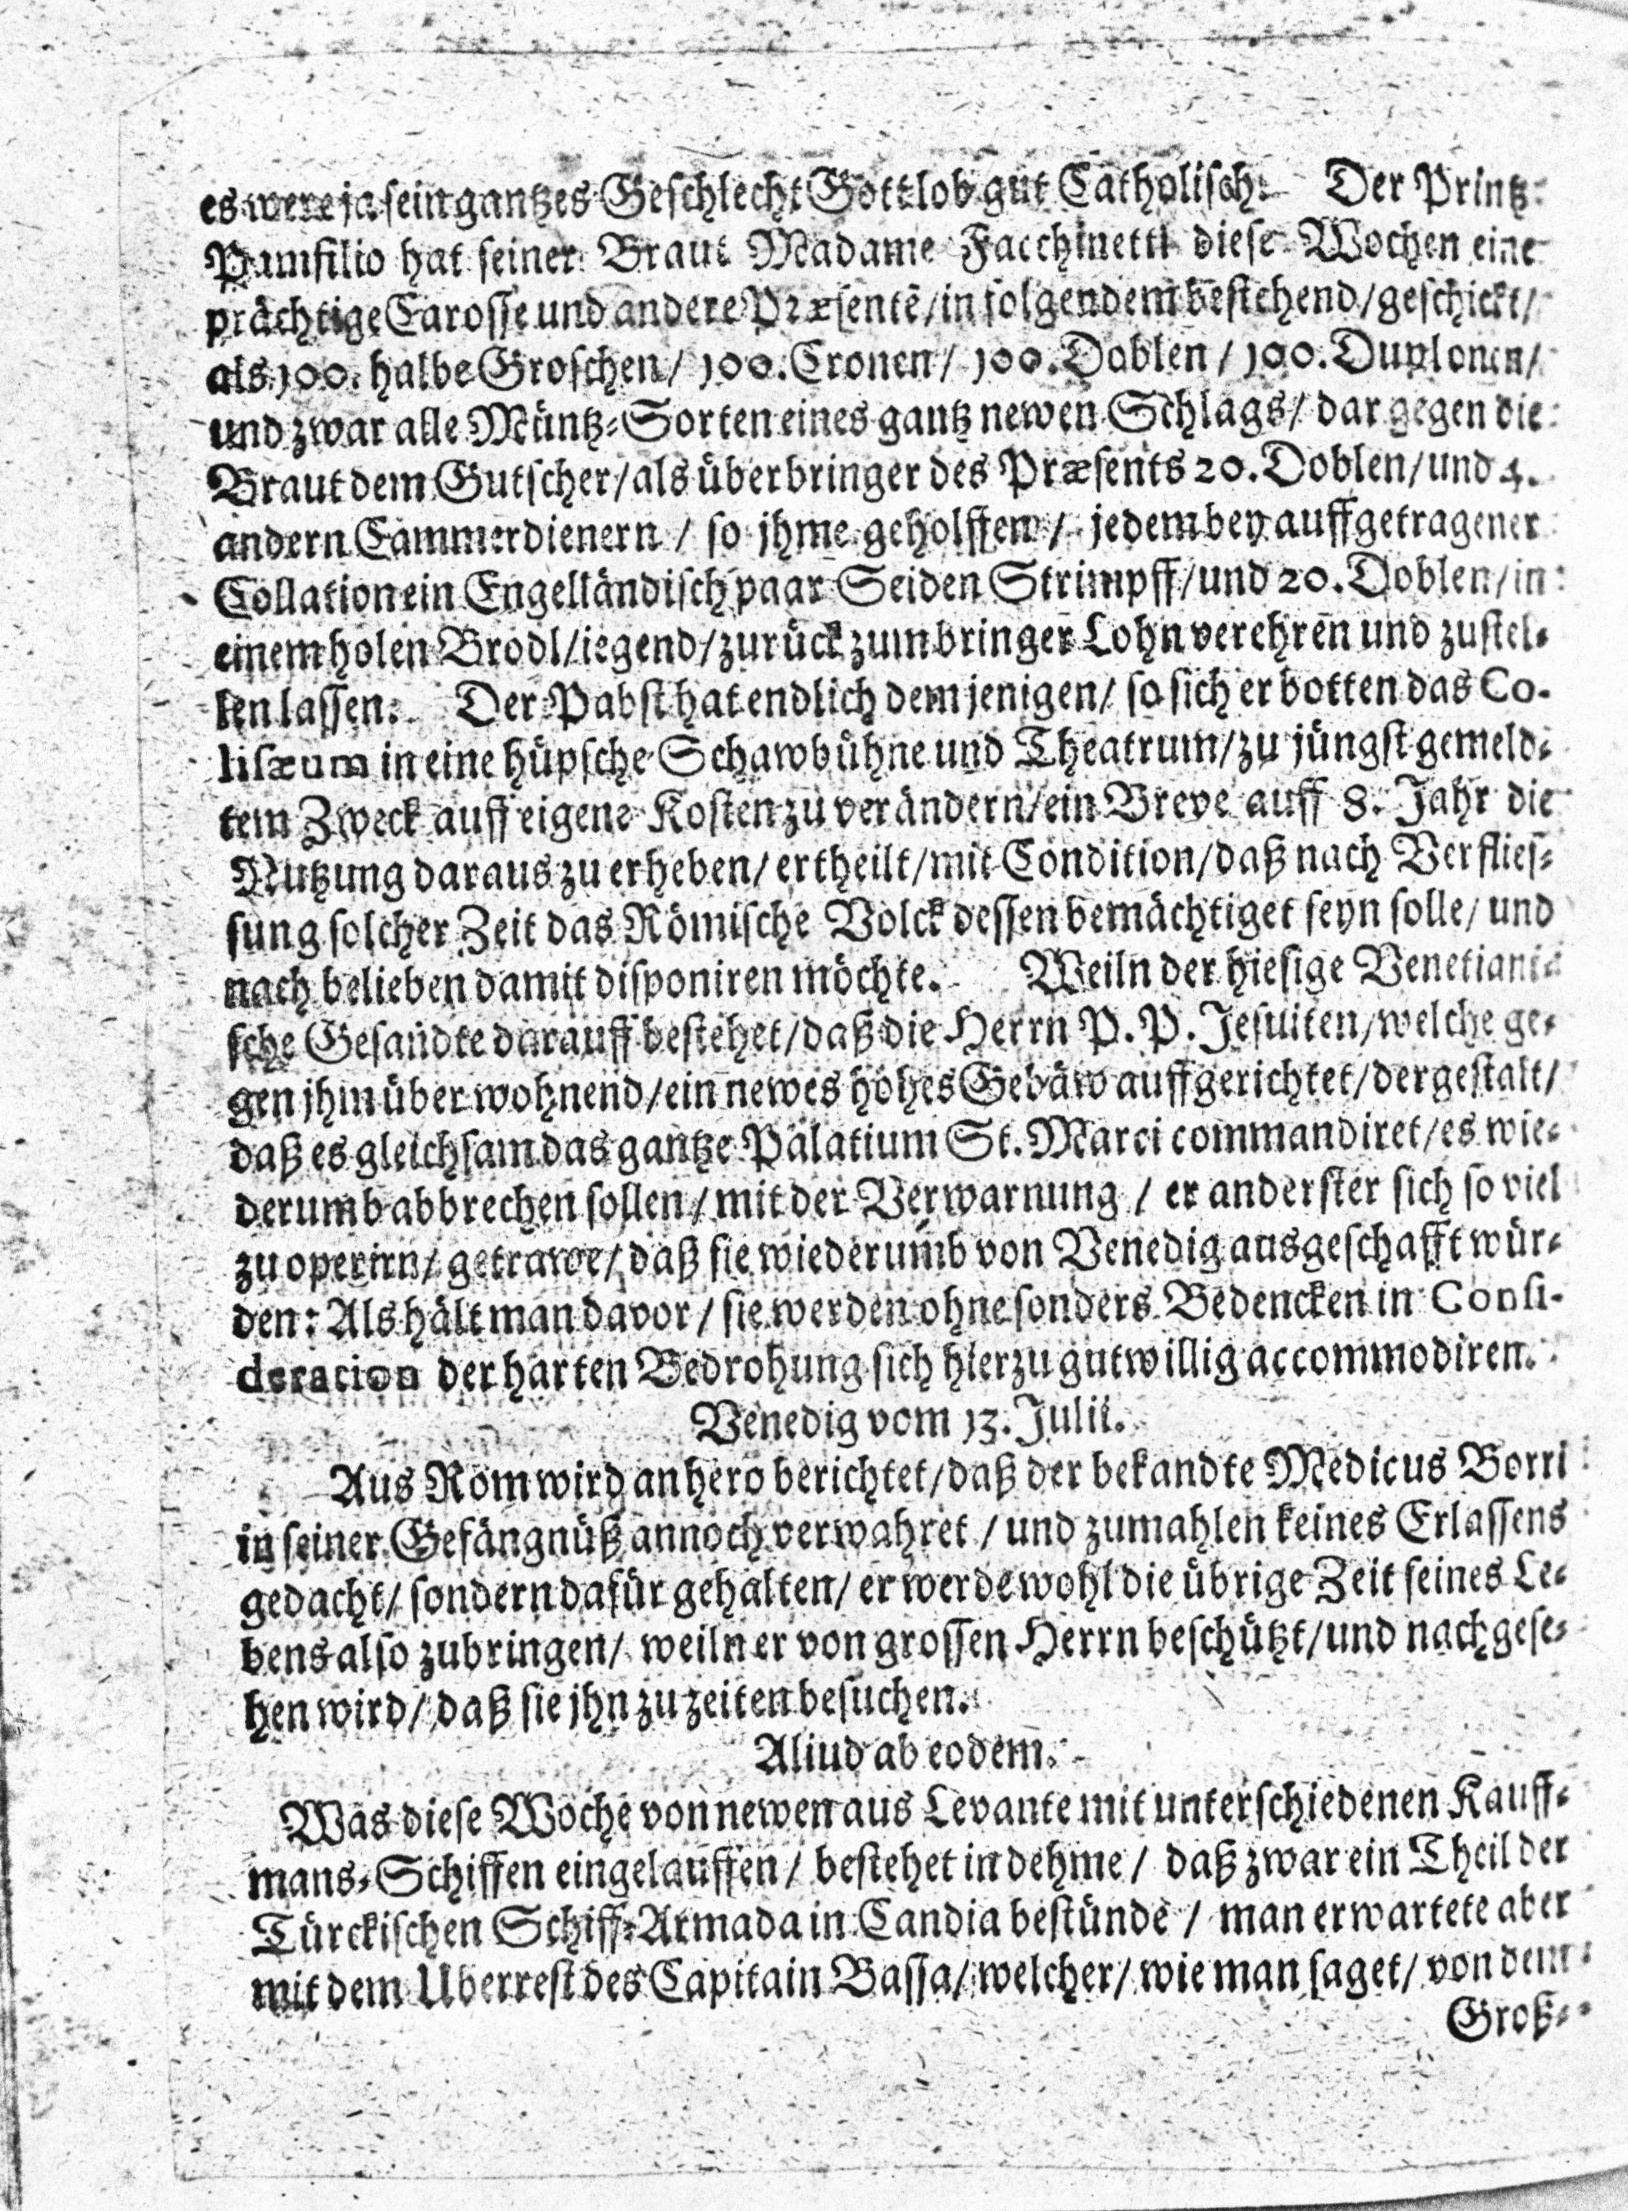 es were ja sein gantzes Geschlecht Gottlob gut Catholisch. Der Printz
Pamfilio hat seiner Braut Madame Facchinetti diese Wochen eine
prächtige Carosse und andere Præsentē/in folgendem bestehend/geschickt/
als 100. halbe Groschen/ 100. Cronen/ 100. Doblen/ 100. Duplonen/
und zwar alle Müntz-Sorten eines gantz newen Schlags/ dargegen die
Braut dem Gutscher/als überbringer des Præsents 20. Doblen/und 4.
andern Cammerdienern / so jhme geholffen / jedem bey auffgetragener
Collation ein Engelländisch paar Seiden Strimpff/und 20. Doblen/in
einem holen Brodl/iegend/zurück zum bringer Lohn verehren und zustel-
len lassen. Der Pabst hat endlich demjenigen/ so sich erbotten das Co-
lisæum in eine hüpsche Schawbühne und Theatrum/zu jüngst gemeld-
tem Zweck auff eigene Kosten zu verändern/ein Breve auff 8. Jahr die
Nutzung daraus zu erheben/ ertheilt/mit Condition/daß nach Verflies-
sung solcher Zeit das Römische Volck dessen bemächtiget seyn solle/ und
nach belieben damit disponiren möchte. Weiln der hiesige Venetiani-
sche Gesandte darauff bestehet/daß die Herrn P. P. Jesuiten/welche ge-
gen jhm über wohnend/ein newes hohes Gebäw auffgerichtet/dergestalt/
daß es gleichsam das gantze Palatium St. Marci commandiret/es wie-
derumb abbrechen sollen/mit der Verwarnung / er anderster sich so viel
zu operirn/getrawe/daß sie wiederumb von Venedig ausgeschafft wür-
den: Als hält man davor/ sie werden ohne sonders Bedencken in Consi-
deration der harten Bedrohung sich hierzu gutwillig accommodiren.
Venedig vom 13. Julii.
Aus Rom wird anhero berichtet/daß der bekandte Medicus Borri
in seiner Gefängnüß annoch verwahret / und zumahlen keines Erlassens
gedacht/ sondern dafür gehalten/ er werde wohl die übrige Zeit seines Le-
bens also zubringen/ weiln er von grossen Herrn beschützt/und nachgese-
hen wird/ daß sie jhn zu zeiten besuchen.
Aliud ab eodem.
Was diese Woche von newen aus Levante mit unterschiedenen Kauff-
mans-Schiffen eingelauffen/ bestehet in dehme/ daß zwar ein Theil der
Türckischen Schiff-Armada in Candia bestünde / man erwartete aber
mit dem Uberrest des Capitain Bassa/ welcher/ wie man saget/ von dem
Groß-